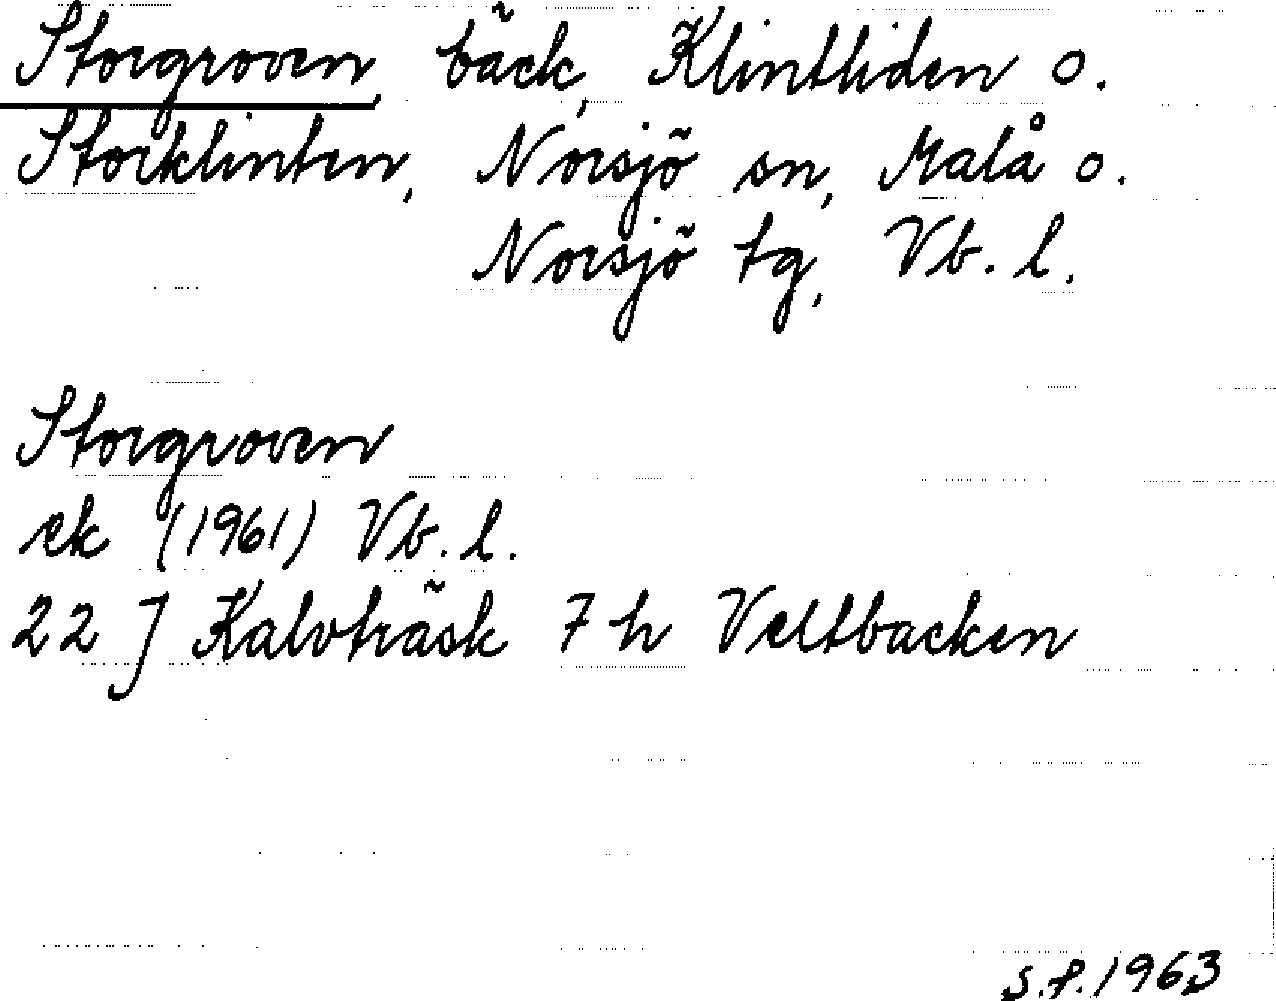 Storgroven, bäck, Klintliden o.
Storklinten, Norsjö sn, Malå o.
Norsjö tg, Vb. l.
Storgroven
ek (1961) Vb. l.
22 J Kalvträsk 7 h Veltbacken
S.P. 1963